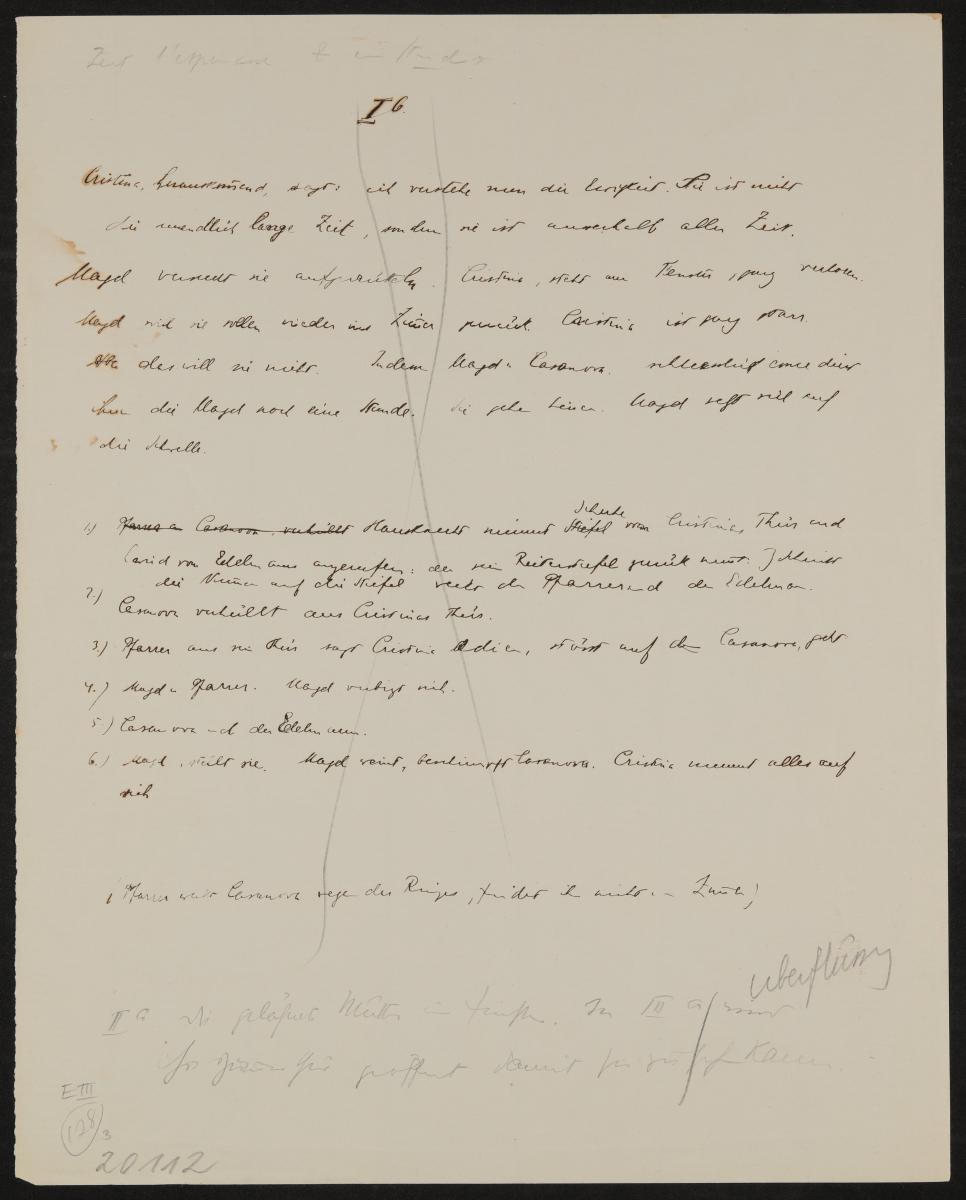 Zeit
I b.
Cristina, herauskommend, sagt: ich verstehe nun die Ewigkeit. Sie ist nicht
die unendlich lange Zeit, sondern sie ist ausserhalb aller Zeit.
Magd versucht sie aufzurütteln. Cristina, steht am Fenster, ganz verloren.
Magd will sie sollen wieder ins Zimmer zurück. Cristina ist ganz starr.
das will sie nicht. Indem Magd u Casanova. schliesslich
die Magd noch eine Stunde. Sie gehen hinein. Magd setzt sich auf
die Schwelle.
1.) Pfarrer u Casanova verhüllt Hausknecht nimmt Stiefel Schuhe von Cristinas Thür und
wird von Edelmann angerufen: der sein Reiterstiefel zurück nimmt.) Schreibt
die Numer auf die Stiefel weckt den Pfarrer und den Edelman.
2.) Casanova verhüllt aus Cristinas Thür.
3.) Pfarrer aus sein Thür sagt Cristina Adieu, stösst auf den Casanova, geht
4.) Magd u Pfarrer. Magd verbirgt sich.
5.) Casanova und der Edelmann.
6.) Magd, stellt sie. Magd weint, beschimpft Casanova. Cristina nimmt alles auf
sich
(Pfarrer weckt Casanova wegen des Ringes, findet ihn nicht im Zimer)
überflüssig
II a die Mutter im Finstern. In III a wird
geöffnet damit
E III
128
3
20112